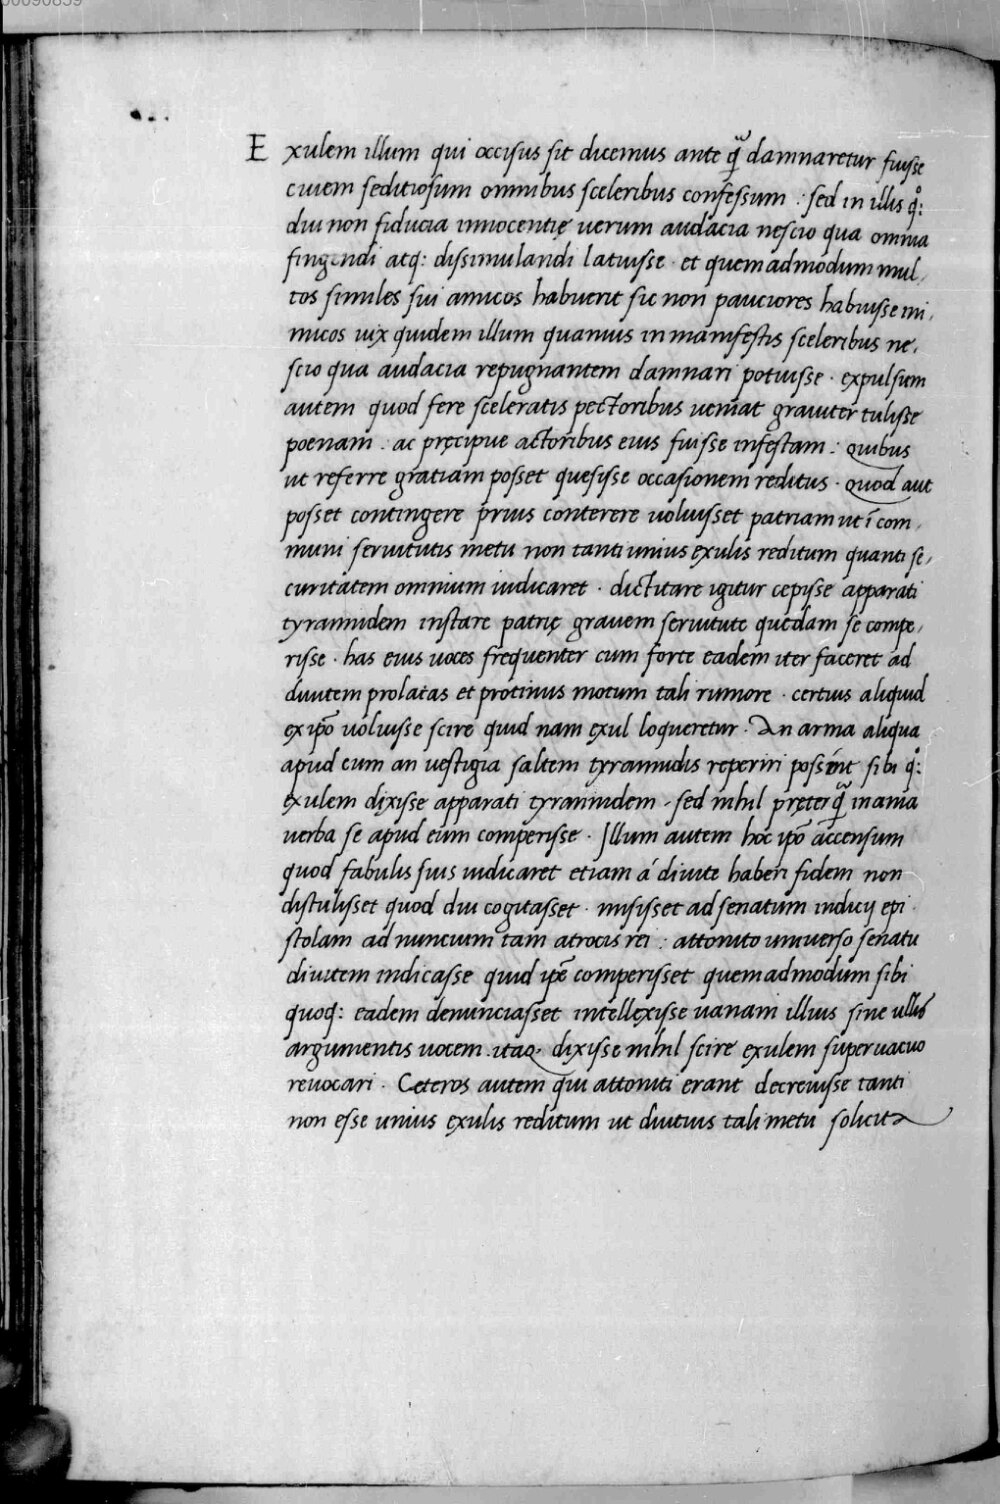 00090859
Exulem illum qui occisus sit dicemus ante q̃ damnaretur fuisse
ciuem seditiosum omnibus sceleribus confessum : sed in illis q̊:
diu non fiducia innocentię uerum audacia nescio qua omnia
fingendi atq: dissimulandi latuisse · et quemadmodum mul,
tos similes sui amicos habuerit sic non pauciores habuisse ini,
micos uix quidem illum quamuis in manifestis sceleribus ne,
scio qua audacia repugnantem damnari potuisse · expulsum
autem quod fere sceleratis pectoribus ueniat grauiter tulisse
poenam : ac pręcipue actoribus eius fuisse infestam : quibus
ut referre gratiam posset quesisse occasionem reditus · quod aut
posset contingere prius conterere uoluisset patriam ut ī com,
muni seruitutis metu non tanti unius exulis reditum quanti se,
curitatem omnium iudicaret · dictitare igitur cepisse apparati
tyrannidem instare patrię grauem seruitute quędam se compe,
risse · has eius uoces frequenter cum forte eadem iter faceret ad
diuitem prolatas et protinus motum tali rumore · certius aliquid
ex ip̃o uoluisse scire quid nam exul loqueretur · An arma aliqua
apud eum an uestigia saltem tyrannidis reperiri possint sibi q̊:
exulem dixisse apparati tyrannidem · sed nihil pręterq̃ inania
uerba se apud eum comperisse · Illum autem hoc ip̃o accensum
quod fabulis suis iudicaret etiam á diuite haberi fidem non
distulisset quod diu cogitasset · misisset ad senatum indicij epi
stolam ad nuncium tam atrocis rei : attonito uniuerso senatu
diuitem indicasse quid ip̃e comperisset quemadmodum sibi
quoq: eadem denunciasset intellexisse uanam illius sine ullis
argumentis uocem · itaq, dixisse nihil scire exulem superuacuo
reuocari · Ceteros autem qui attoniti erant decreuisse tanti
non esse unius exulis reditum ut diutius tali metu solicita